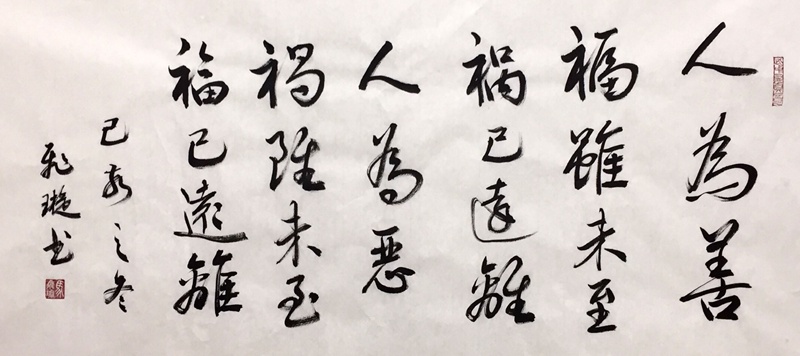 人為善
福雖未至
禍已遠離
人為惡
禍雖未至
福已遠離
己亥之冬
飛璇书